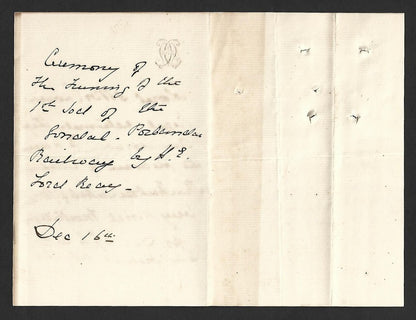 Ceremony of
the turning of the
1st Sod of the
Gondal - Porbandar
Railway by H. E.
Lord Reay -
Dec 16th